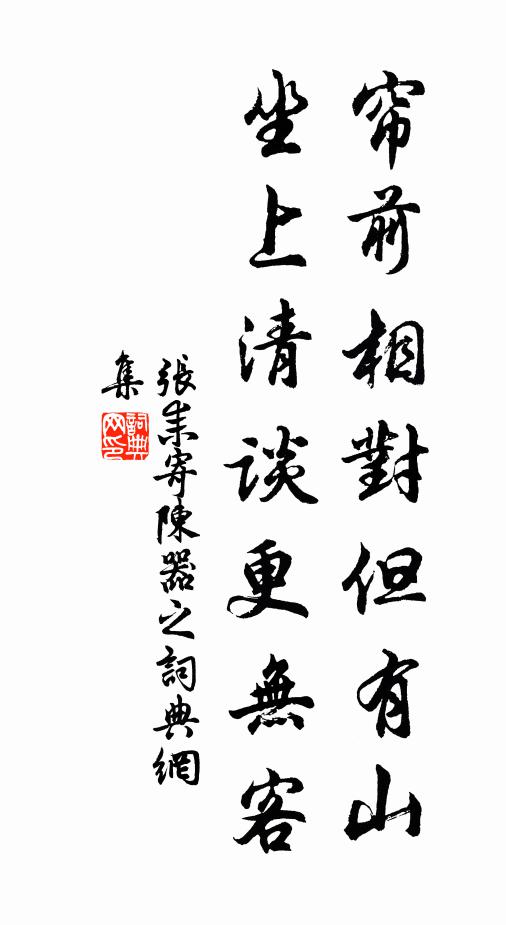 帘前相對但有山
坐上清談更無客
張耒寄陳器之詞典網
集
詞典
网印